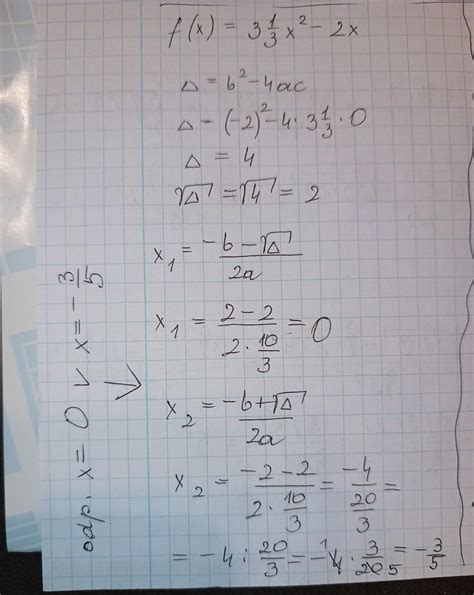 f(x) = 3 1/3 x² - 2x
Δ = b² - 4ac
Δ - (-2)² - 4 · 3 1/3 · 0
Δ = 4
√Δ = √4 = 2
x₁ = (-b - √Δ)/2a
x₁ = (2 - 2)/(2 · 10/3) = 0
x₂ = (-b + √Δ)/2a
x₂ = (-2 - 2)/(2 · 10/3) = -4/(20/3) =
= -4 : 20/3 = -¹4 · 3/20 5 = -3/5
odp. x = 0 ∨ x = -3/5